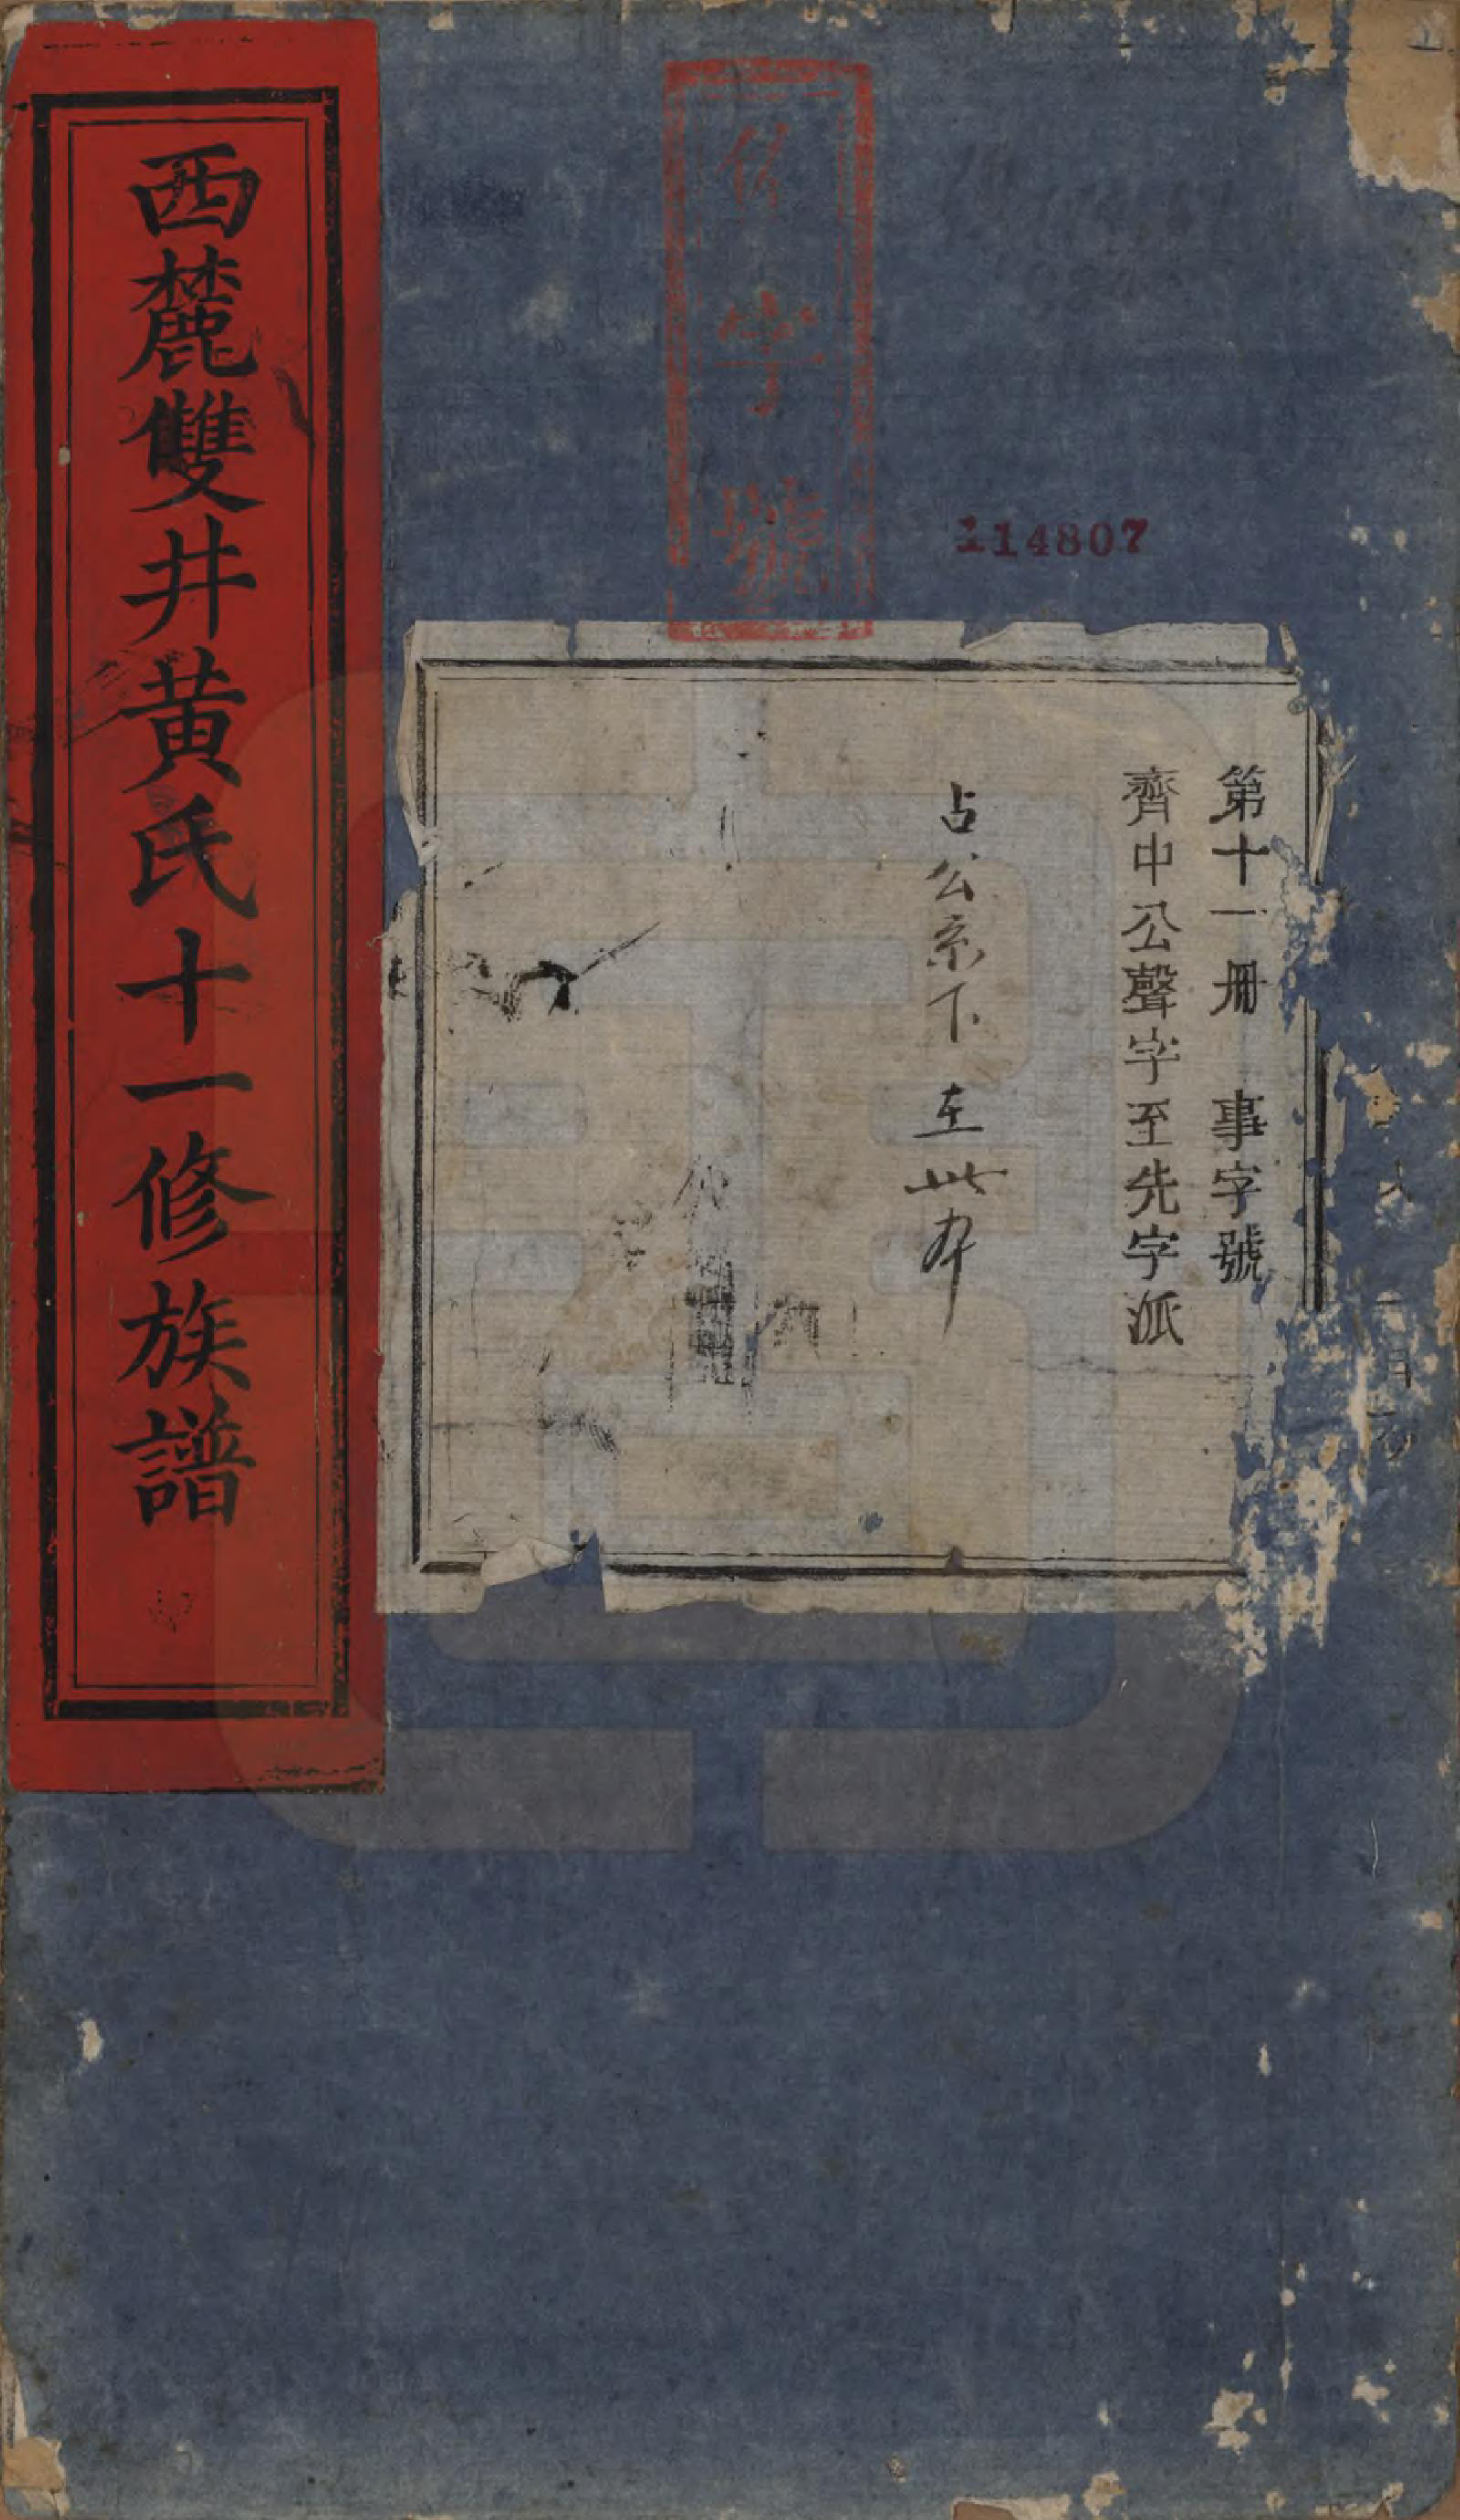 第十一冊 事字號
齊中公聲字至先字派
占公系下 在此本
114807
字號
西麓雙井黃氏十一修族譜